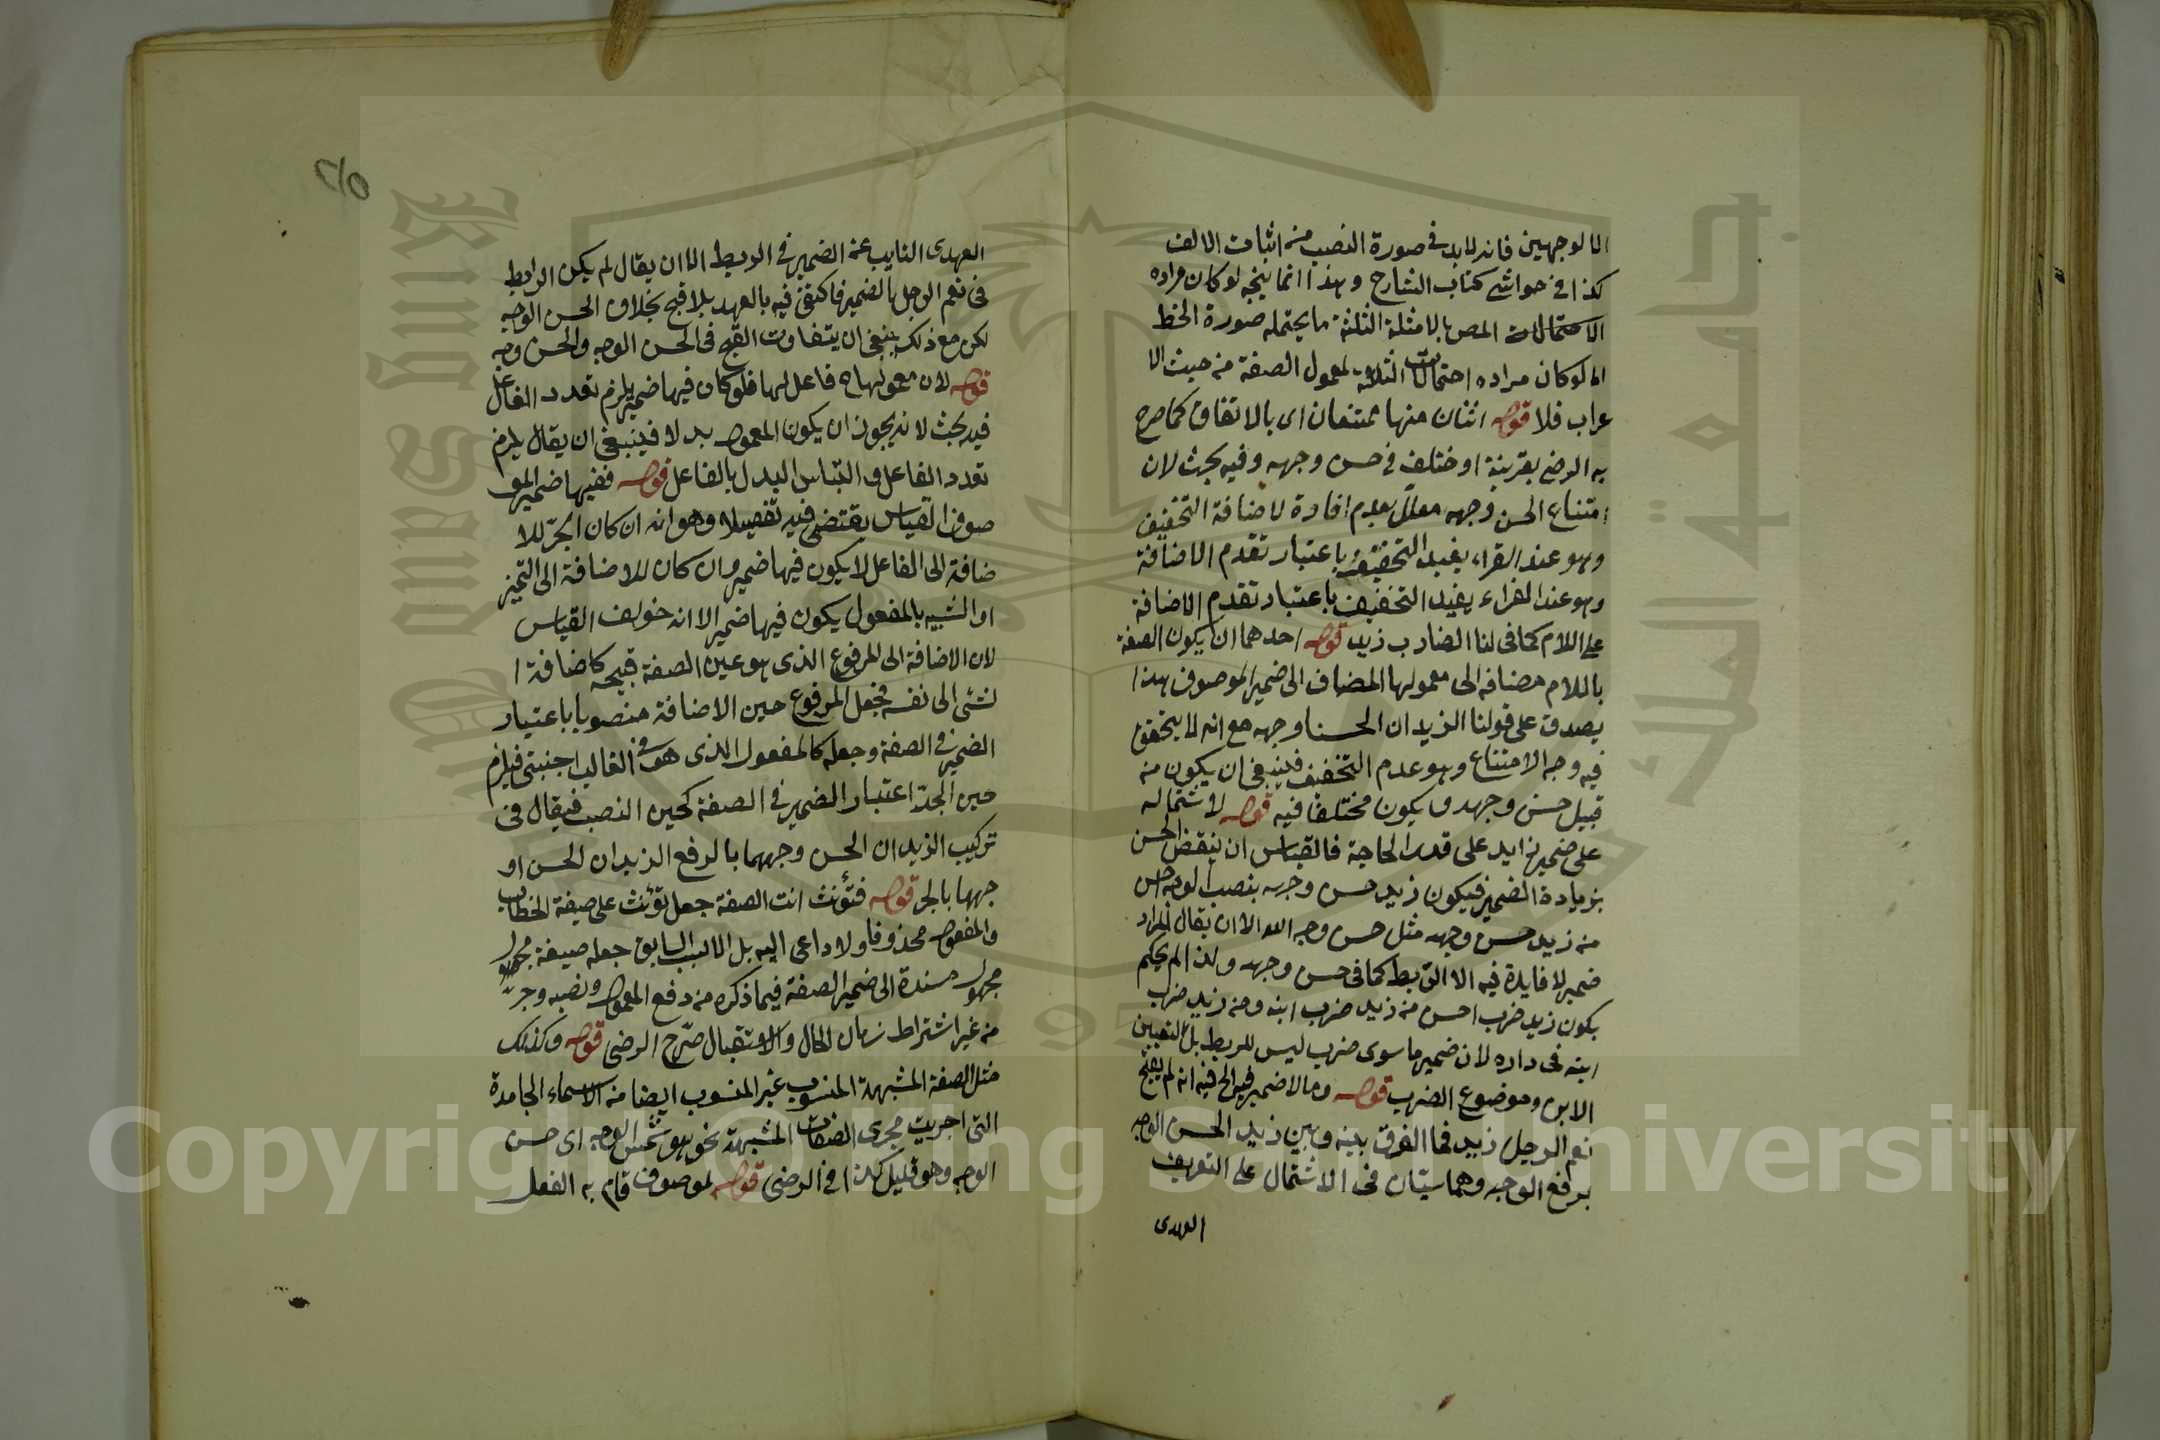 الا لوجهين فانه لابد في صورة النصب من اثبات الالف
كذا في حواشي كتاب الشارح وهذا انما يتجه لو كان مراده
الاحتمالات المص بالامثلة الثلثة ما يحتمله صورة الخط
اما لو كان مراده احتمالات الثلاثة لمعمول الصفة من حيث الا
عراب فلا قوله اثنان منها ممتنعان اى بالاتفاق كما صرح
به الرضى بقرينة او ختلف في حسن وجهه وفيه بحث لان
امتناع الحسن وجهه معلل بعدم افادة الاضافة التخفيف
وهو عند الفراء يفيد التخفيف باعتبار تقدم الاضافة
وهو عند الفراء يفيد التخفيف باعتبار تقدم الاضافة
على اللام كما في لنا الضارب زيد قوله احدهما ان يكون الصفة
باللام مضافة الى معمولها المضاف الى ضمير الموصوف هذا
يصدق على قولنا الزيدان الحسنا وجهه مع انه لا يتحقق
فيه وجه الامتناع وهو عدم التخفيف فينبغي ان يكون من
قبيل حسن وجهه و يكون مختلفا فيه قوله لاشتماله
على ضمير زايد على قدر الحاجة فالقياس ان ينقض الحسن
بزيادة الضمير فيكون زيد حسن وجهه بنصب الوجه احسن
من زيد حسن وجهه مثل حسن وجه الله الا ان يقال المراد
ضمير لا فايدة فيه الا الربط كما في حسن وجهه ولذا لم يحكم
بكون زيد ضرب احسن من زيد ضرب ابنه ومن زيد ضرب
ابنه في داره لان ضمير ما سوى ضرب ليس للربط بل لتعيين
الابن وموضوع الضرب قوله وما لا ضمير فيه الخ فيه انه لم يقبح
نعم الرجل زيد فما الفرق بينه وبين زيد الحسن الوجه
برفع الوجه وهما سيّان في الاشتمال على التعريف
العهدى
٢١٥
العهدى النايب عن الضمير في الربط الا ان يقال لم يكن الرابط
في نعم الرجل الضمير فاكتفى فيه بالعهد بلا قبح بخلاف الحسن الوجه
لكن مع ذلك ينبغي ان يتفاوت القبح في الحسن الوجه والحسن وجه
قوله لان معمولها ح فاعل لها فلو كان فيها ضمير يلزم تعدد الفاعل
فيه بحث لانه يجوز ان يكون المعمول بدلا فينبغي ان يقال يلزم
تعدد الفاعل او التباس البدل بالفاعل قوله ففيها ضمير المو
صوف القياس يقتضى فيه تفصيلا وهو انه ان كان الجرّ للا
ضافة الى الفاعل لا يكون فيها ضمير وان كان للاضافة الى التميز
او الشبيه بالمفعول يكون فيها ضمير الا انه خولف القياس
لان الاضافة الى المرفوع الذى هو عين الصفة قبيحه كاضافة ا
لشئ الى نفسه فجعل المرفوع حين الاضافة منصوبا باعتبار
الضمير في الصفة وجعله كالمفعول الذى هو في الغالب اجنبتى فيلزم
حين الجرّ اعتبار الضمير في الصفة كحين النصب فيقال في
تركيب الزيدان الحسن وجههما بالرفع الزيدان الحسن او
جهها بالجر قوله فتؤنث انت الصفة جعل تؤنث على صيغة الخطاب
والمفعول محذوفا ولا داعى اليه بل السابق جعله صيغة مجهول
مجهول مسندة الى ضمير الصفة فيما ذكره من رفع المعمول ونصبه وجره
من غير اشتراط زمان الحال والاستقبال صرّح الرضى قوله وكذلك
مثل الصفة المشبهة المنسوب غير المنسوب ايضا من الاسماء الجامدة
التى اجريت مجرى الصفات المشبهة نحو هو شمس الوجه اى حسن
الوجه وهو قليل كذا في الرضى قوله لموصوف قام به الفعل
Copyright © King Saud University
King Saud University
جامعة الملك